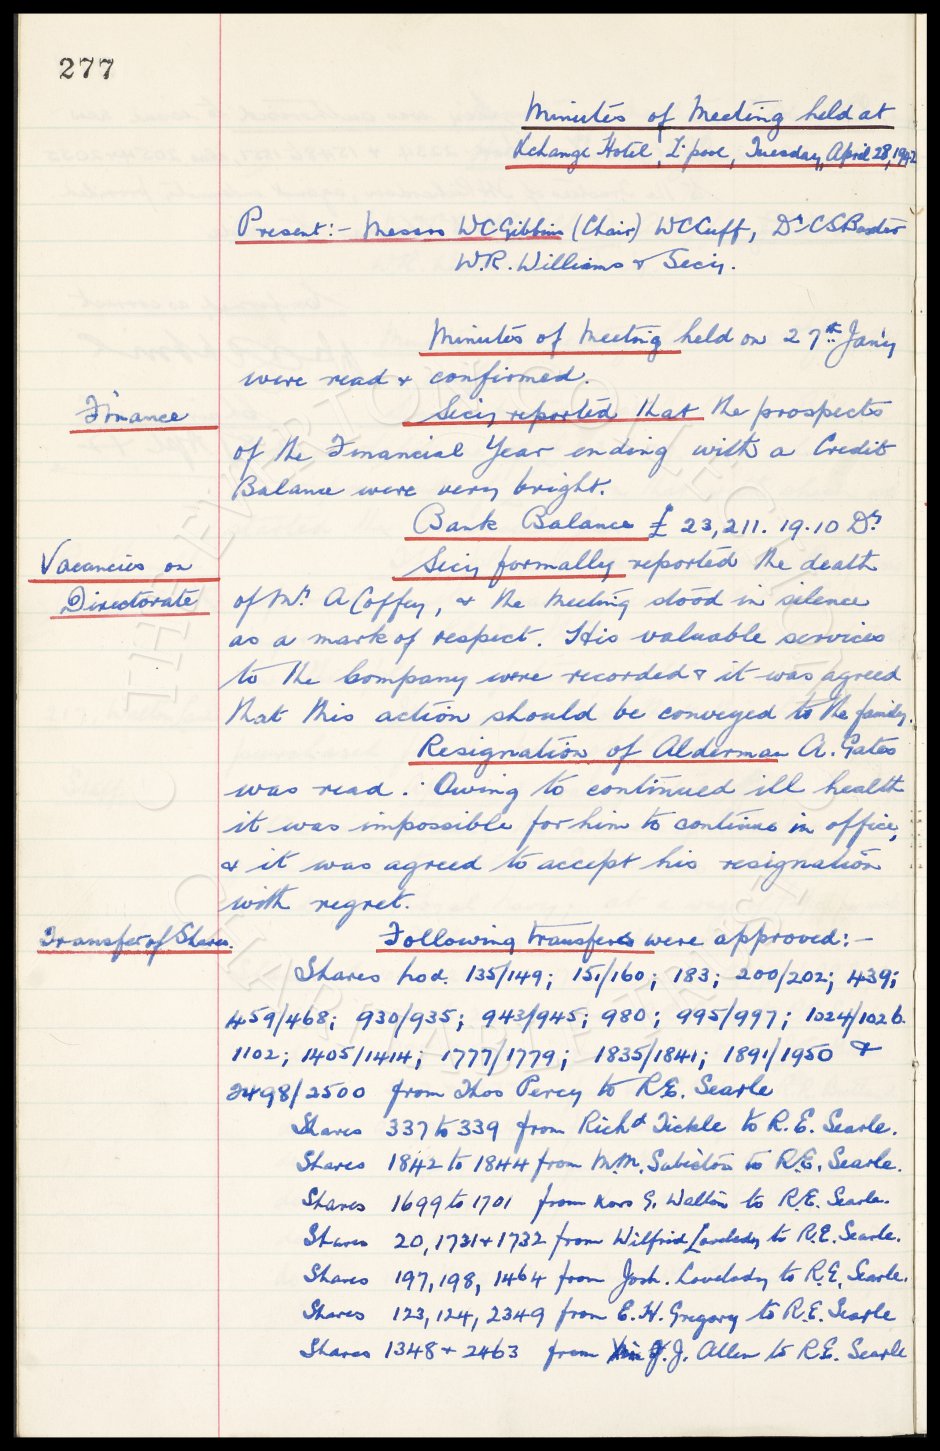 277
Minutes of Meeting held at
Xchange Hotel, L'pool, Tuesday, April 28, 1942
Present:- Messrs WC Gibbins (Chair) WC Cuff, Dr CS Baxter
W.R. Williams & Secy.
Minutes of Meeting held on 27th Jan'y
were read & confirmed.
Finance
Secy reported that the prospects
of the Financial Year ending with a Credit
Balance were very bright.
Bank Balance £23,211.19.10 Dr
Vacancies on
Directorate
Secy formally reported the death
of Mr A Coffey, & the Meeting stood in silence
as a mark of respect. His valuable services
to the Company were recorded & it was agreed
that this action should be conveyed to the family.
Resignation of Alderman A. Gates
was read. Owing to continued ill health
it was impossible for him to continue in office,
& it was agreed to accept his resignation
with regret.
Transfer of Shares.
Following transfers were approved:-
Shares nos. 135/149; 151/160; 183; 200/202; 439;
459/468; 930/935; 943/945; 980; 995/997; 1024/1026.
1102; 1405/1414; 1777/1779; 1835/1841; 1891/1950 &
2498/2500 from Thos Percy to R.E. Searle
Shares 337 to 339 from Richd Tickle to R.E. Searle.
Shares 1842 to 1844 from M.M. Sabiston to R.E. Searle.
Shares 1699 to 1701 from G. Walton to R.E. Searle.
Shares 20, 1731 & 1732 from Wilfrid Lovelady to R.E. Searle.
Shares 197, 198, 1464 from Josh. Lovelady to R.E. Searle.
Shares 123, 124, 2349 from E.H. Gregory to R.E. Searle
Shares 1348 & 2463 from J. Allen to R.E. Searle
THE EVERTON COLLECTION
CHARITABLE TRUST